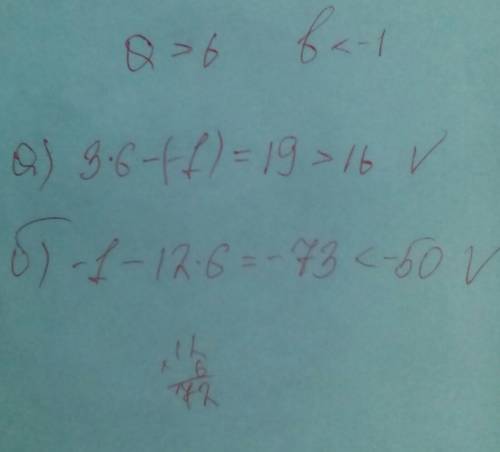 a > 6 b < -1
а) 3·6-(-1) = 19 > 16 V
б) -1 - 12·6 = -73 < -50 V
12
× 6
72